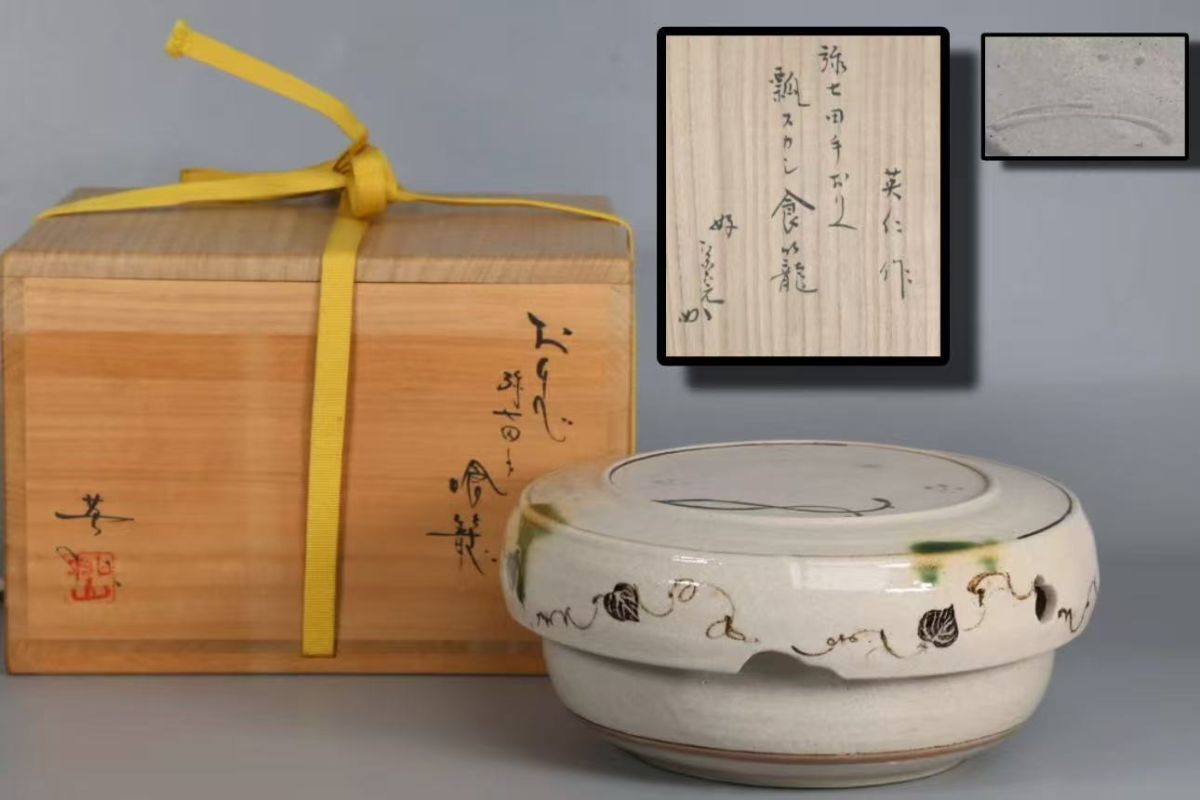 おりべ
弥七田手
喰籠
英
英仁作
弥七田手おりべ
瓢スカシ食籠
好